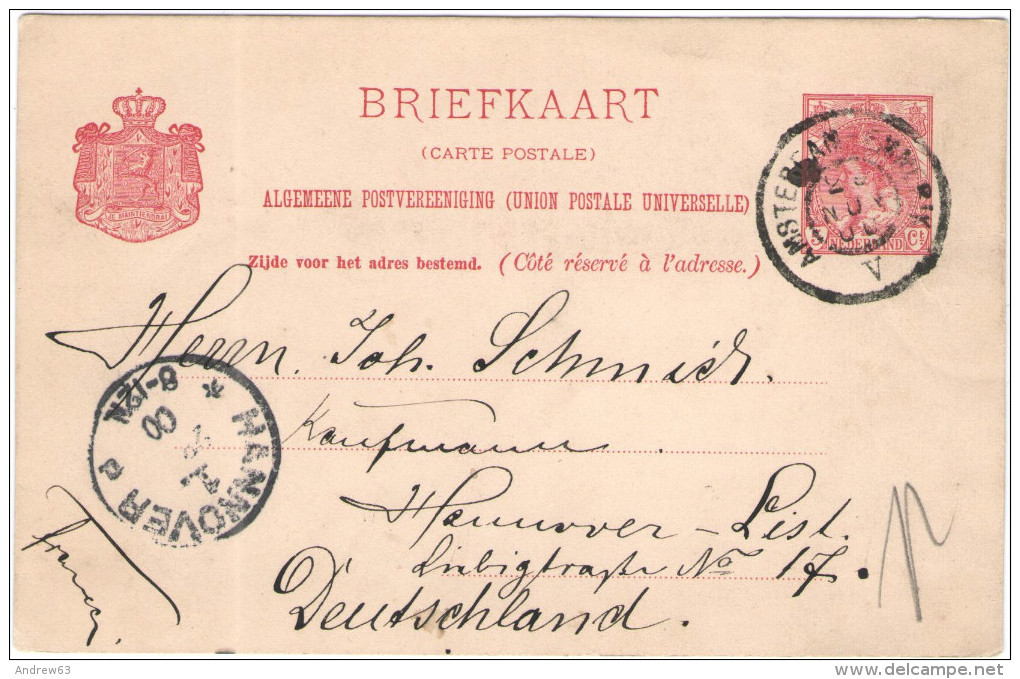 BRIEFKAART
(CARTE POSTALE)
ALGEMEENE POSTVEREENIGING (UNION POSTALE UNIVERSELLE)
Zijde voor het adres bestemd. (Côté réservé à l'adresse.)
JE MAINTIENDRAI
5 Ct
NEDERLAND
AMSTERDAM
A
Herrn. Joh. Schmidt.
Kaufmann
Hannover – List.
Liebigtraße No 17.
Deutschland.
HANNOVER
8-12N
00
Andrew63
delcampe.net